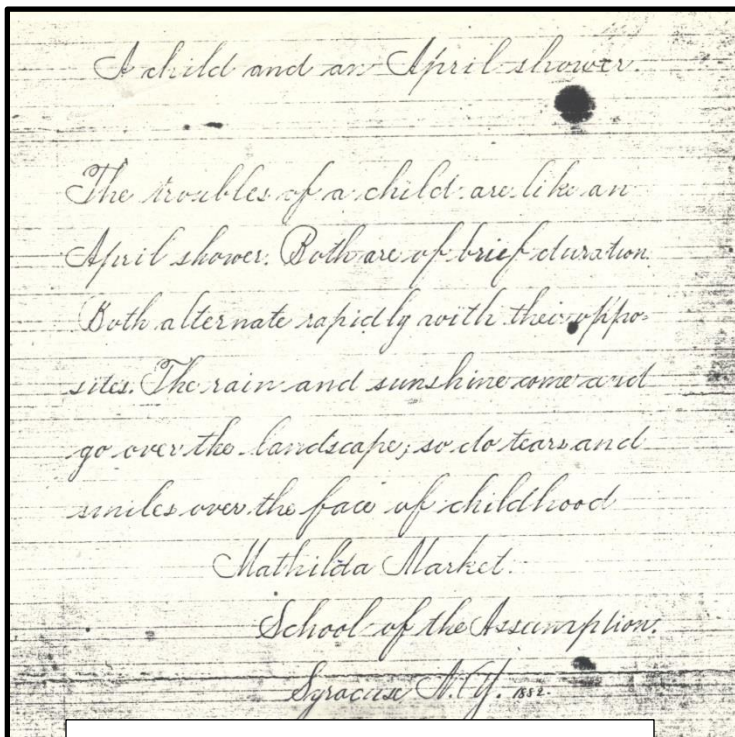 A child and an April shower.
The troubles of a child are like an
April shower. Both are of brief duration.
Both alternate rapidly with their oppo-
sites. The rain and sunshine come and
go over the landscape; so do tears and
smiles over the face of childhood
Mathilda Market.
School of the Assumption.
Syracuse N.Y. 1882.